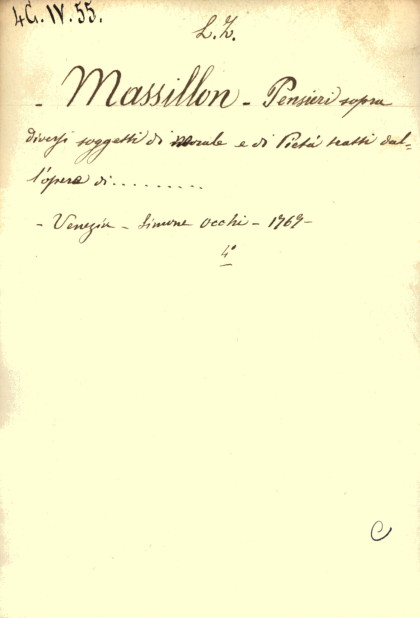 4G.IV.55.
L.Z.
- Massillon - Pensieri sopra
diversi soggetti di Morale e di Pietá tratti dal=
l'opere di.........
- Venezia - Simone Occhi - 1769 -
4°
C